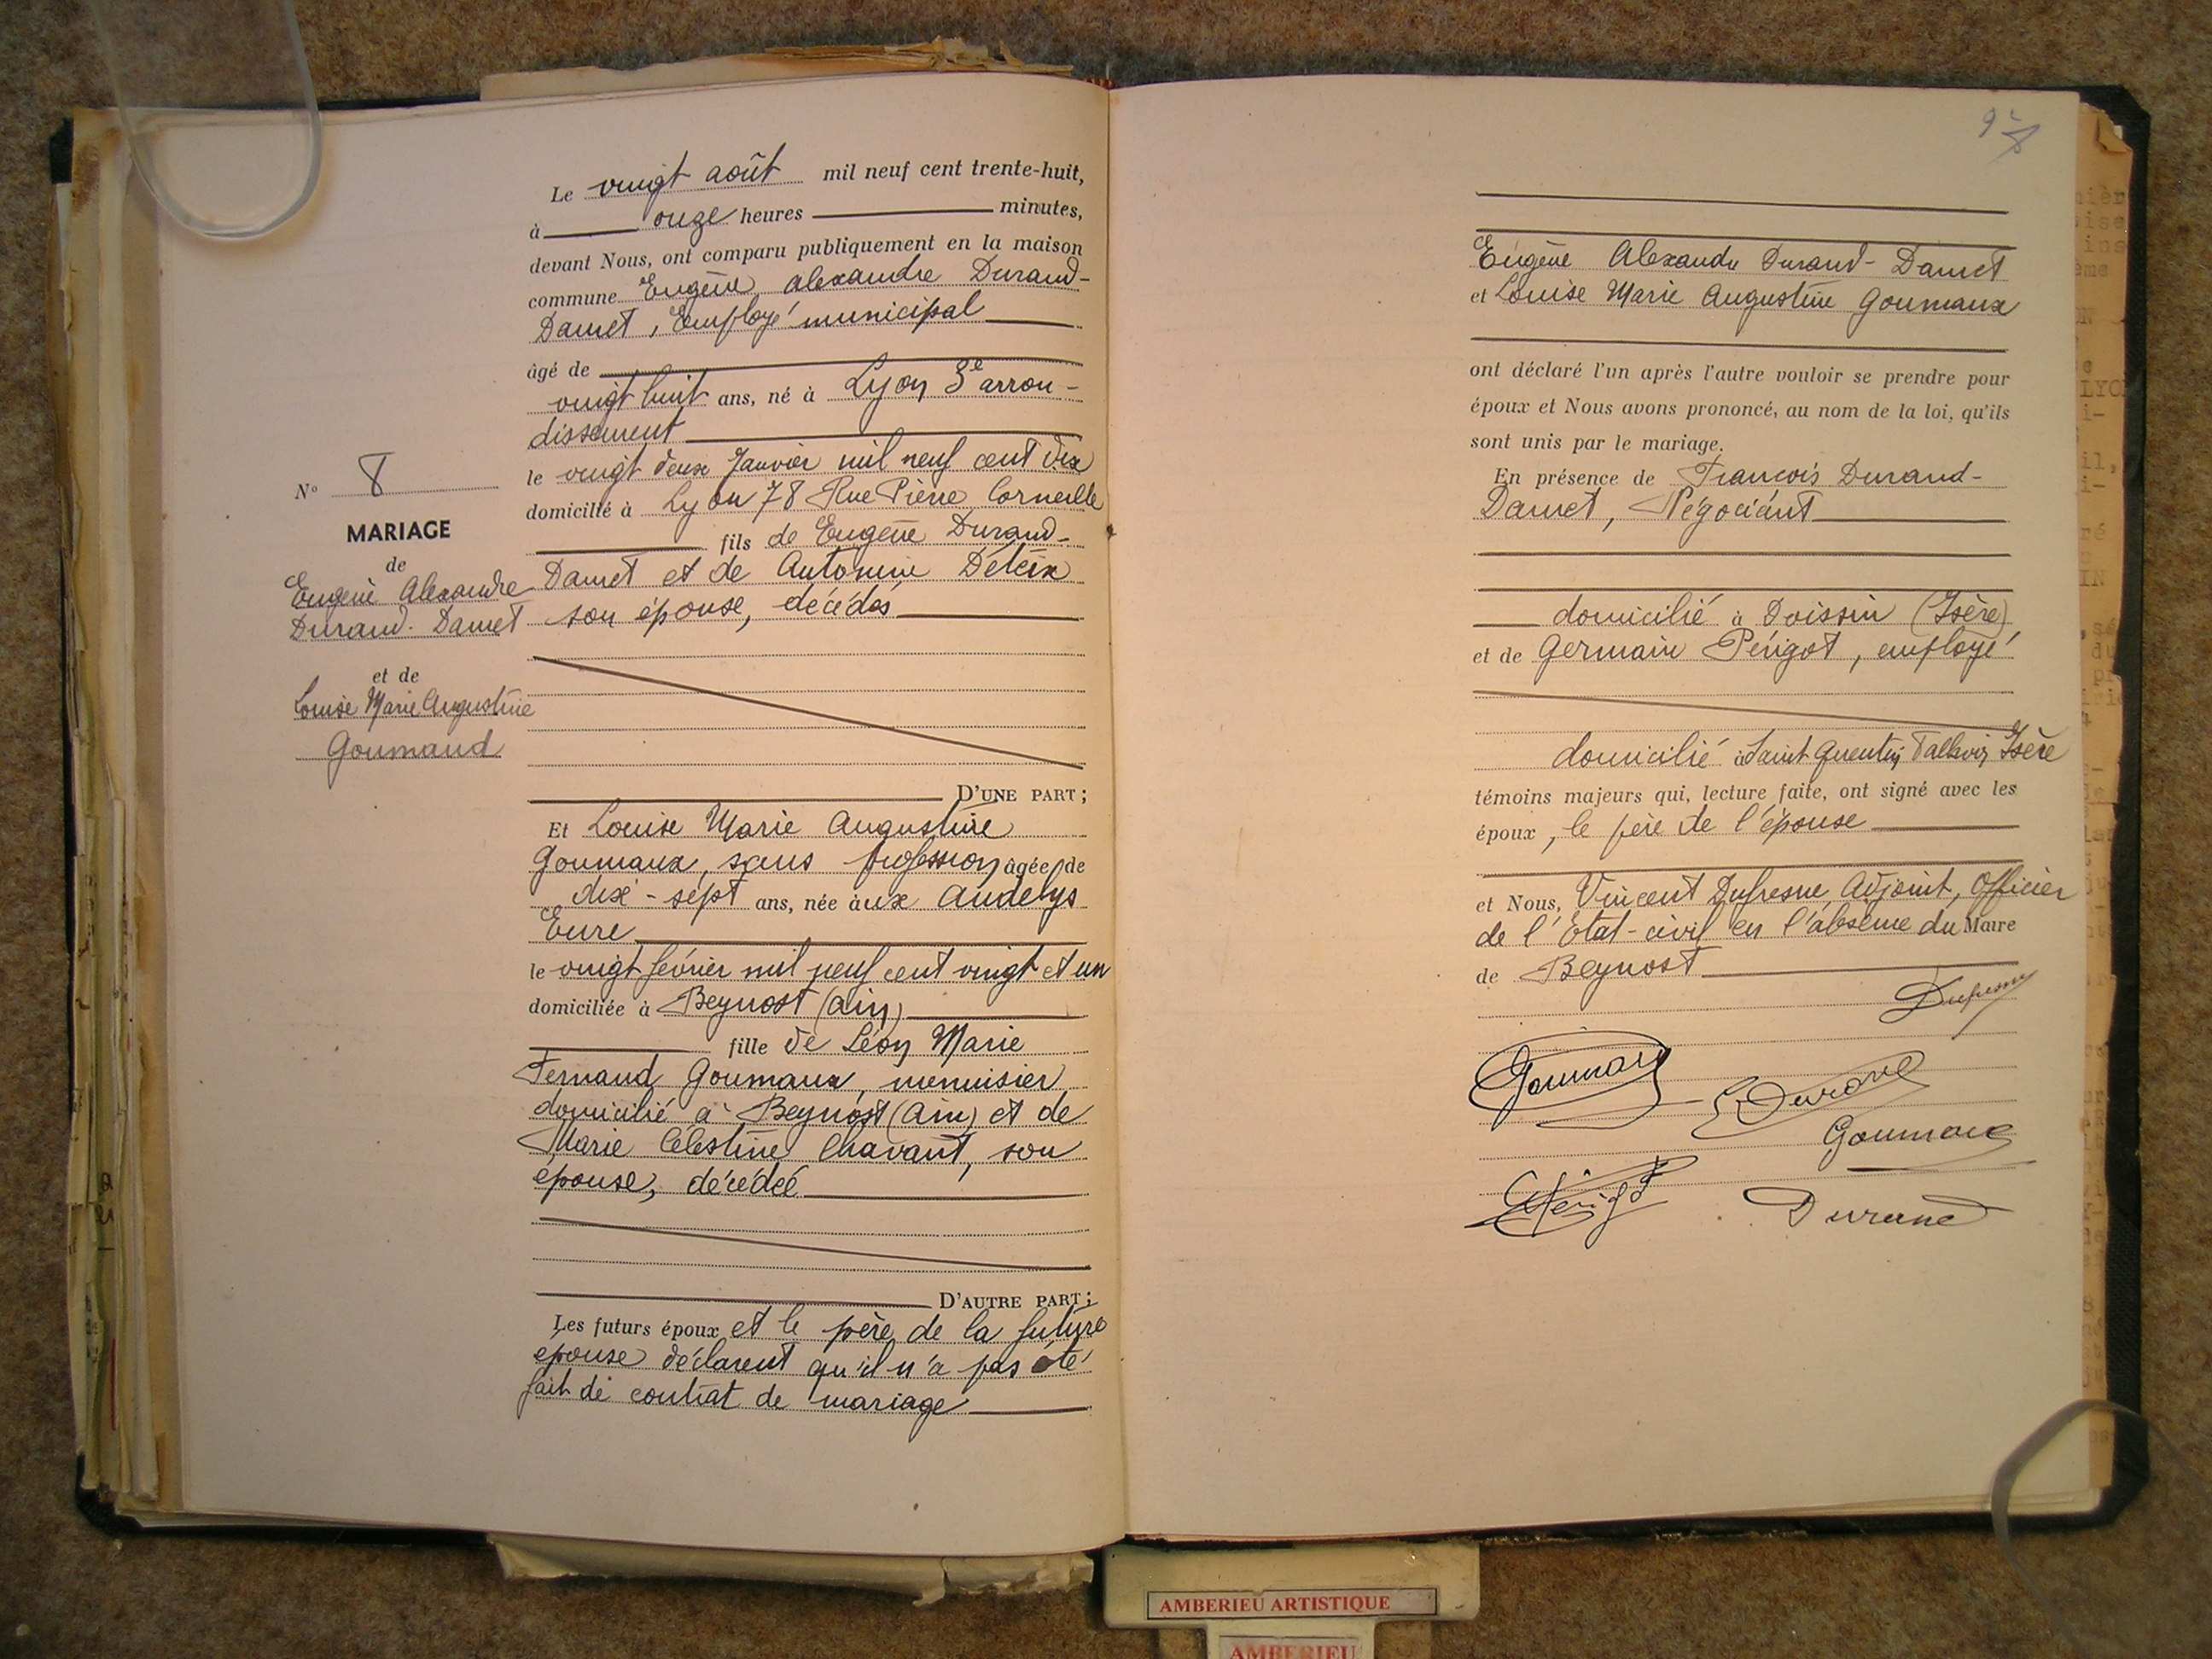 Le vingt août mil neuf cent trente-huit,
à onze heures minutes,
devant Nous, ont comparu publiquement en la maison
commune Eugène Alexandre Durand-
Damet, Employé municipal
âgé de
vingt huit ans, né à Lyon 3e arron-
dissement
le vingt deux Janvier mil neuf cent dix
domicilié à Lyon 78 Rue Pierre Corneille
fils de Eugène Durand-
Damet et de Antonine Déteix
son épouse, décédés
D'UNE PART;
Et Louise Marie Augustine
Goumaux, sans profession âgée de
dix-sept ans, née àux Andelys
Eure
le vingt février mil neuf cent vingt et un
domiciliée à Beynost (Ain)
fille de Léon Marie
Fernand Goumaux, menuisier
domicilié à Beynost (Ain) et de
Marie Célestine Chavant, son
épouse, décédée
D'AUTRE PART;
Les futurs époux et le père de la future
épouse déclarent qu'il n'a pas été
fait de contrat de mariage
No 8
MARIAGE
de
Eugène Alexandre
Durand-Damet
et de
Louise Marie Augustine
Goumaud
9
Eugène Alexandre Durand-Damet
et Louise Marie Augustine Goumaux
ont déclaré l'un après l'autre vouloir se prendre pour
époux et Nous avons prononcé, au nom de la loi, qu'ils
sont unis par le mariage.
En présence de François Durand-
Damet, Négociant
domicilié à Doissin (Isère)
et de Germain Périgot, employé
domicilié à Saint Quentin Fallavier Isère
témoins majeurs qui, lecture faite, ont signé avec les
époux, le père de l'épouse
et Nous, Vincent Dufresne, Adjoint, Officier
de l'État-civil en l'absence du Maire
de Beynost
Dufresne
Goumaux
E Durand
Goumaux
Périgot
Durand
AMBERIEU ARTISTIQUE
AMBERIEU